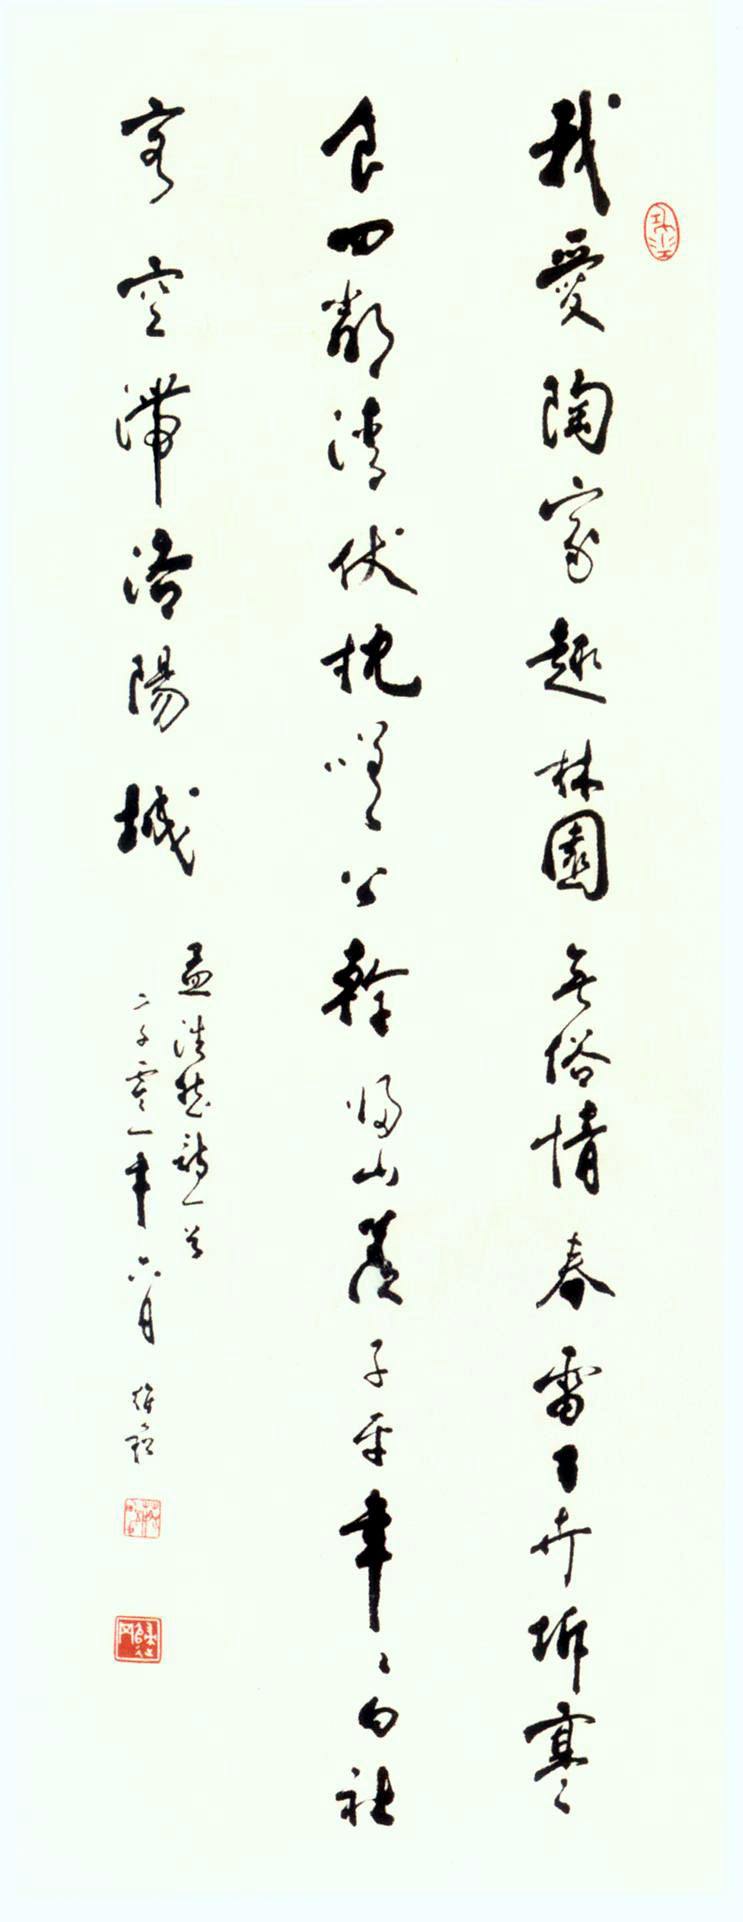 我愛陶家趣林園無俗情春雷百卉坼寒
食四鄰清伏枕嗟公幹歸山羨子平年々白社
客空滯洛陽城
孟浩然詩一首
二千零一年六月